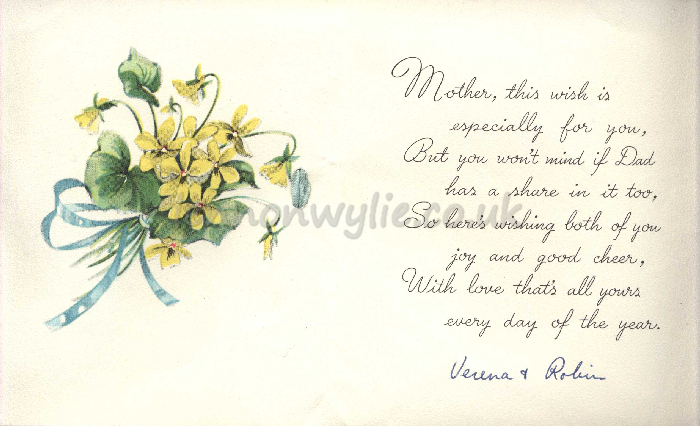 Mother, this wish is
especially for you,
But you won't mind if Dad
has a share in it too,
So here's wishing both of you
joy and good cheer,
With love that's all yours
every day of the year.
Verena & Robin
monwylie.co.uk